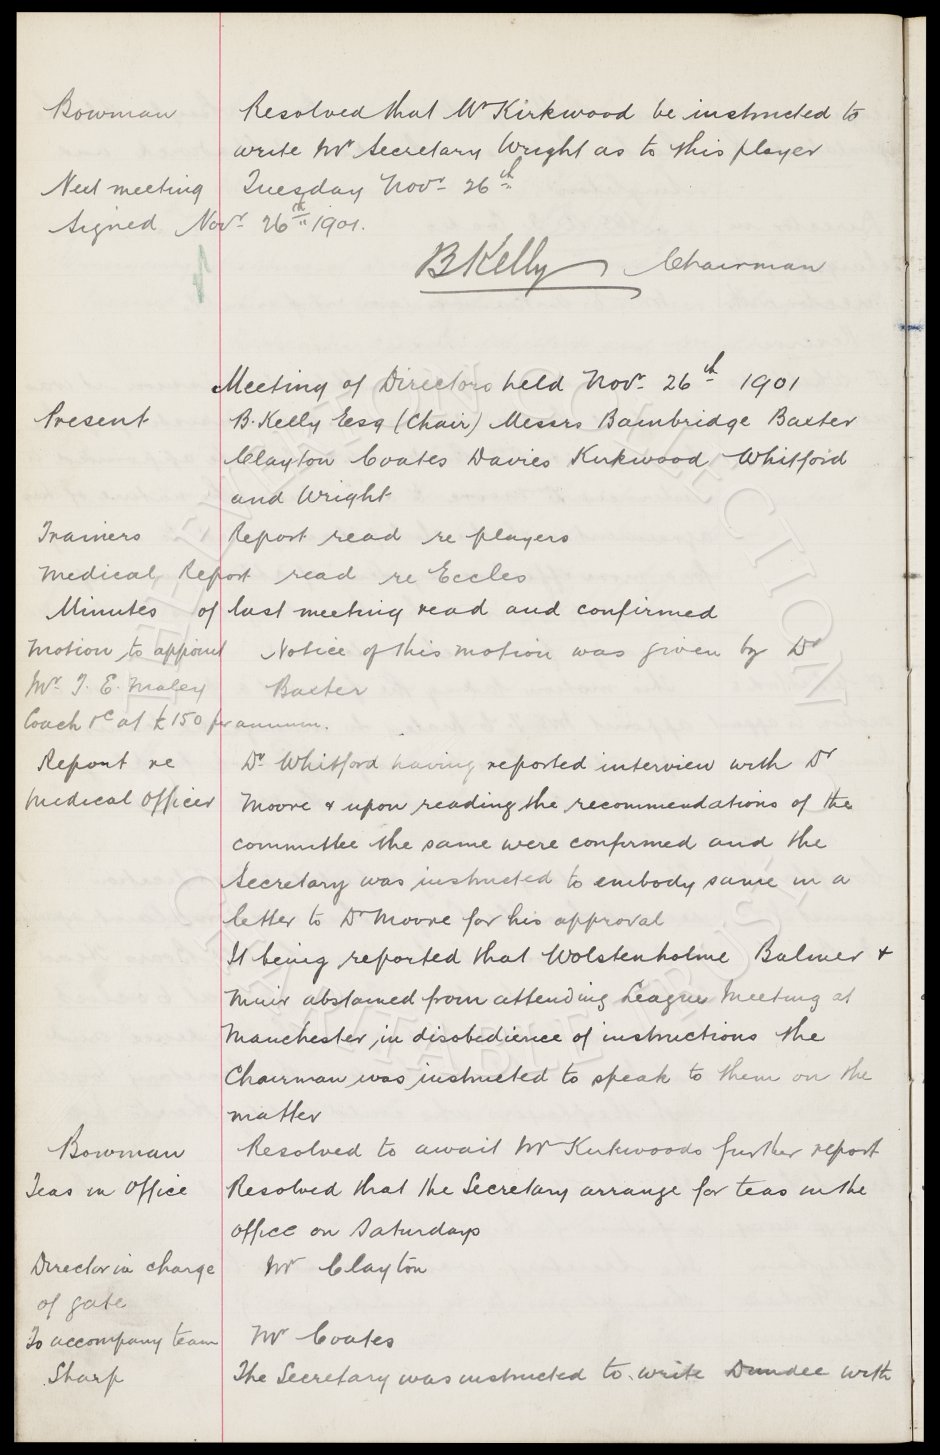 Bowman Resolved that Mr Kirkwood be instructed to
write Mr Secretary Wright as to this player
Next meeting Tuesday Novr 26th
Signed Novr 26th 1901.
B Kelly Chairman
Meeting of Directors held Novr 26th 1901
Present B. Kelly Esq (Chair) Messrs Bainbridge Baxter
Clayton Coates Davies Kirkwood Whitford
and Wright
Trainers Report read re players
Medical Report read re Eccles
Minutes of last meeting read and confirmed
Motion to appoint Notice of this motion was given by Dr
Mr T. E. Maley Baxter
Coach &c at £150 per annum.
Report re Dr Whitford having reported interview with Dr
Medical Officer Moore & upon reading the recommendations of the
committee the same were confirmed and the
Secretary was instructed to embody same in a
letter to Dr Moore for his approval
It being reported that Wolstenholme Balmer &
Muir abstained from attending League Meeting at
Manchester in disobedience of instructions the
Chairman was instructed to speak to them on the
matter
Bowman Resolved to await Mr Kirkwoods further report
Teas in Office Resolved that the Secretary arrange for teas in the
office on Saturdays
Director in charge Mr Clayton
of gate
To accompany team Mr Coates
Sharp The Secretary was instructed to write Dundee with
THE EVERTON COLLECTION
CHARITABLE TRUST